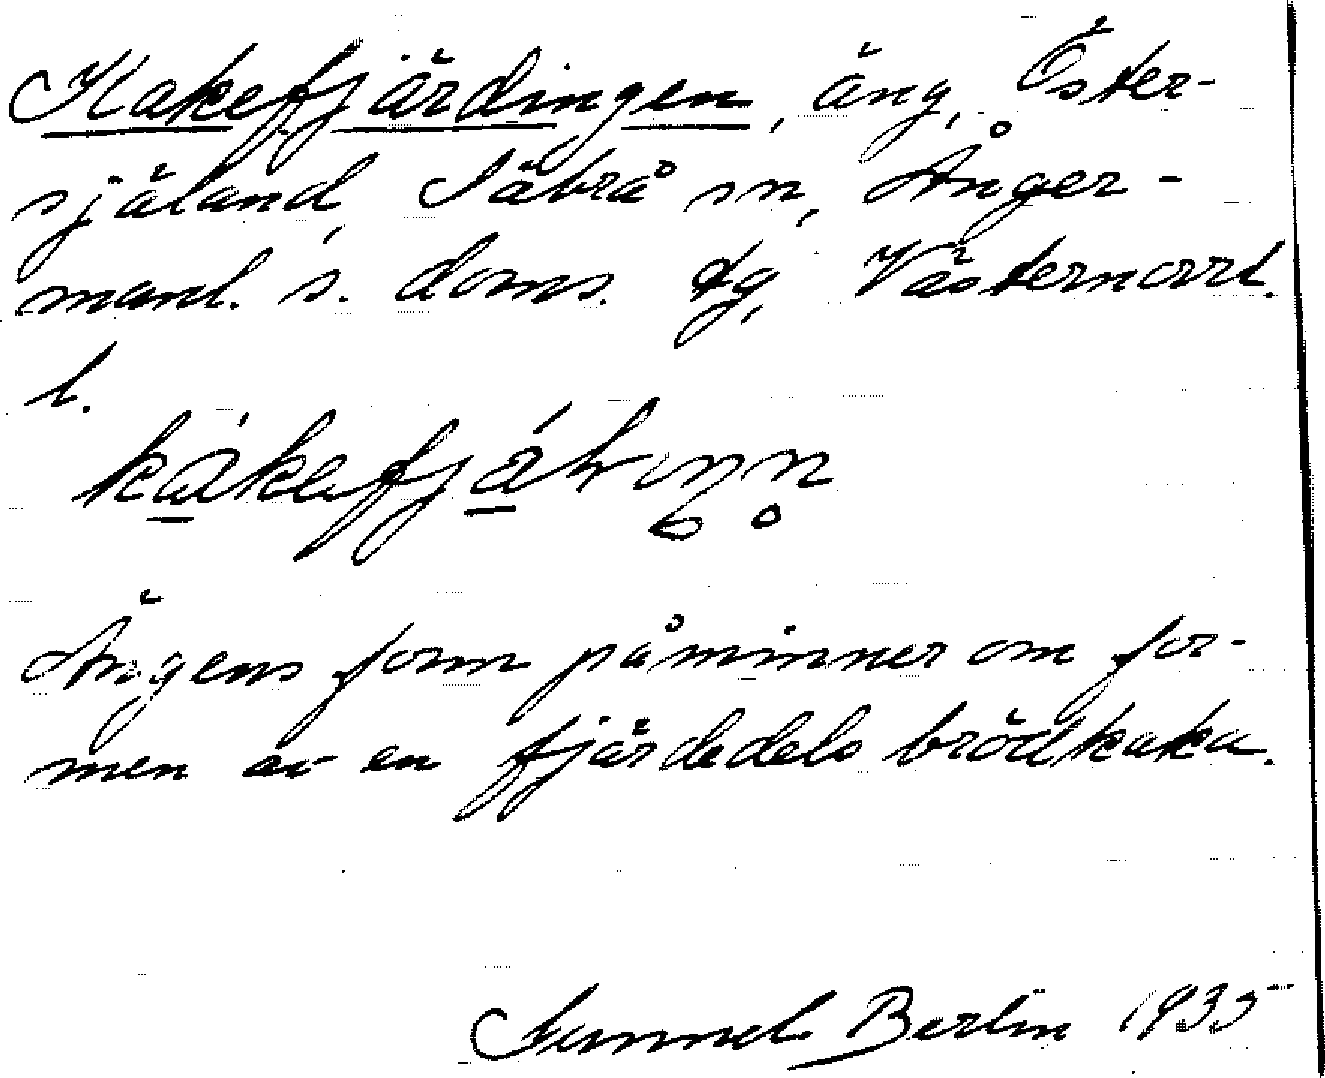 Kakefjärdingen, äng, Öster-
själand, Säbrå sn, Ånger-
manl. s. doms. tg, Västernorrl.
l.
Ängens form påminner om for-
men av en fjärdedels brödkaka.
Berlin 1935